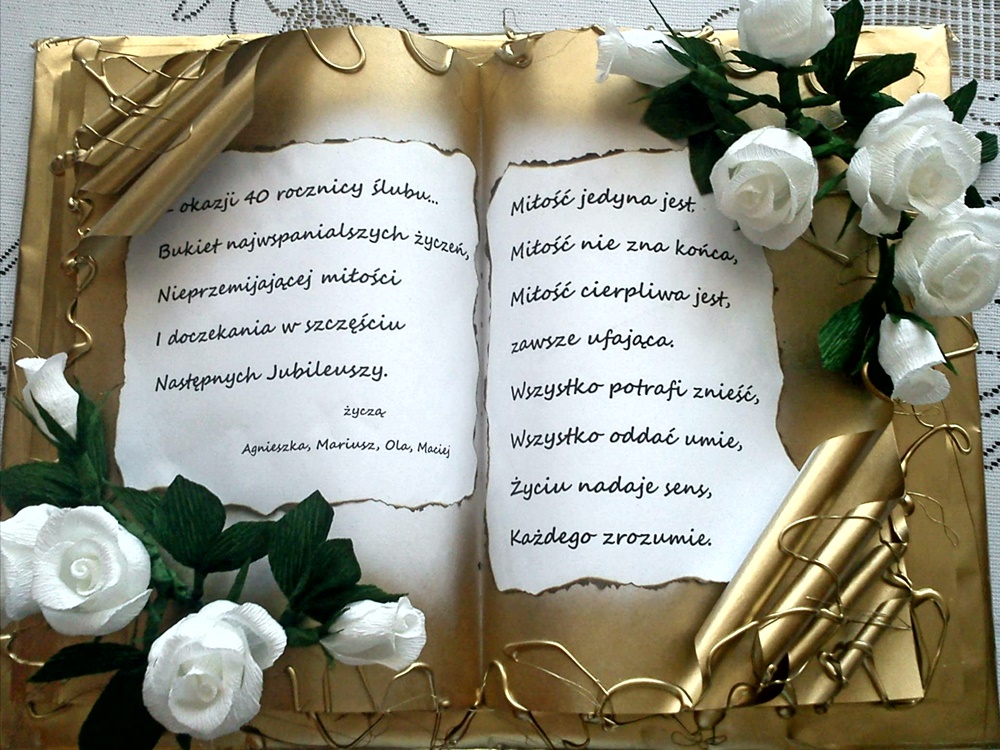 okazji 40 rocznicy ślubu...
Bukiet najwspanialszych życzeń,
Nieprzemijającej miłości
I doczekania w szczęściu
Następnych Jubileuszy.
życzą
Agnieszka, Mariusz, Ola, Maciej
Miłość jedyna jest,
Miłość nie zna końca,
Miłość cierpliwa jest,
zawsze ufająca.
Wszystko potrafi znieść,
Wszystko oddać umie,
Życiu nadaje sens,
Każdego zrozumie.